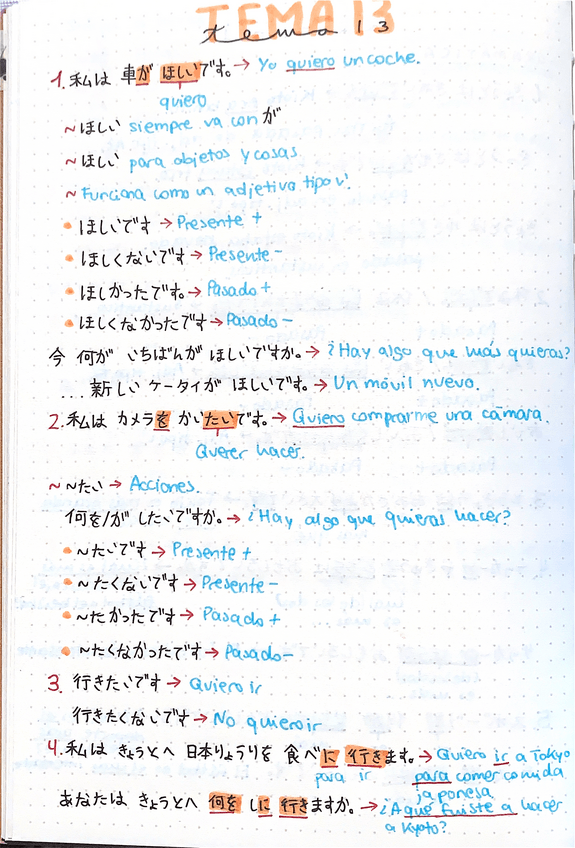 TEMA 13
tema 13
1. 私は 車が ほしいです。→ Yo quiero un coche.
quiero
~ ほしい siempre va con が
~ ほしい para objetos y cosas
~ Funciona como un adjetivo tipo い.
• ほしいです → Presente +
• ほしくないです → Presente -
• ほしかったです。→ Pasado +
• ほしくなかったです → Pasado -
今 何が いちばんが ほしいですか。→ ¿Hay algo que más quieras?
... 新しい ケータイが ほしいです。→ Un móvil nuevo.
2. 私は カメラを かいたいです。→ Quiero comprarme una cámara.
Querer hacer.
~ ~たい → Acciones.
何を/が したいですか。→ ¿Hay algo que quieras hacer?
• ~たいです → Presente +
• ~たくないです → Presente -
• ~たかったです → Pasado +
• ~たくなかったです → Pasado -
3. 行きたいです → Quiero ir
行きたくないです → No quiero ir
4. 私は きょうとへ 日本りょうりを 食べに 行きます。→ Quiero ir a Tokyo
para ir para comer comida
japonesa
あなたは きょうとへ 何を しに 行きますか。→ ¿A qué fuiste a hacer
a Kyoto?